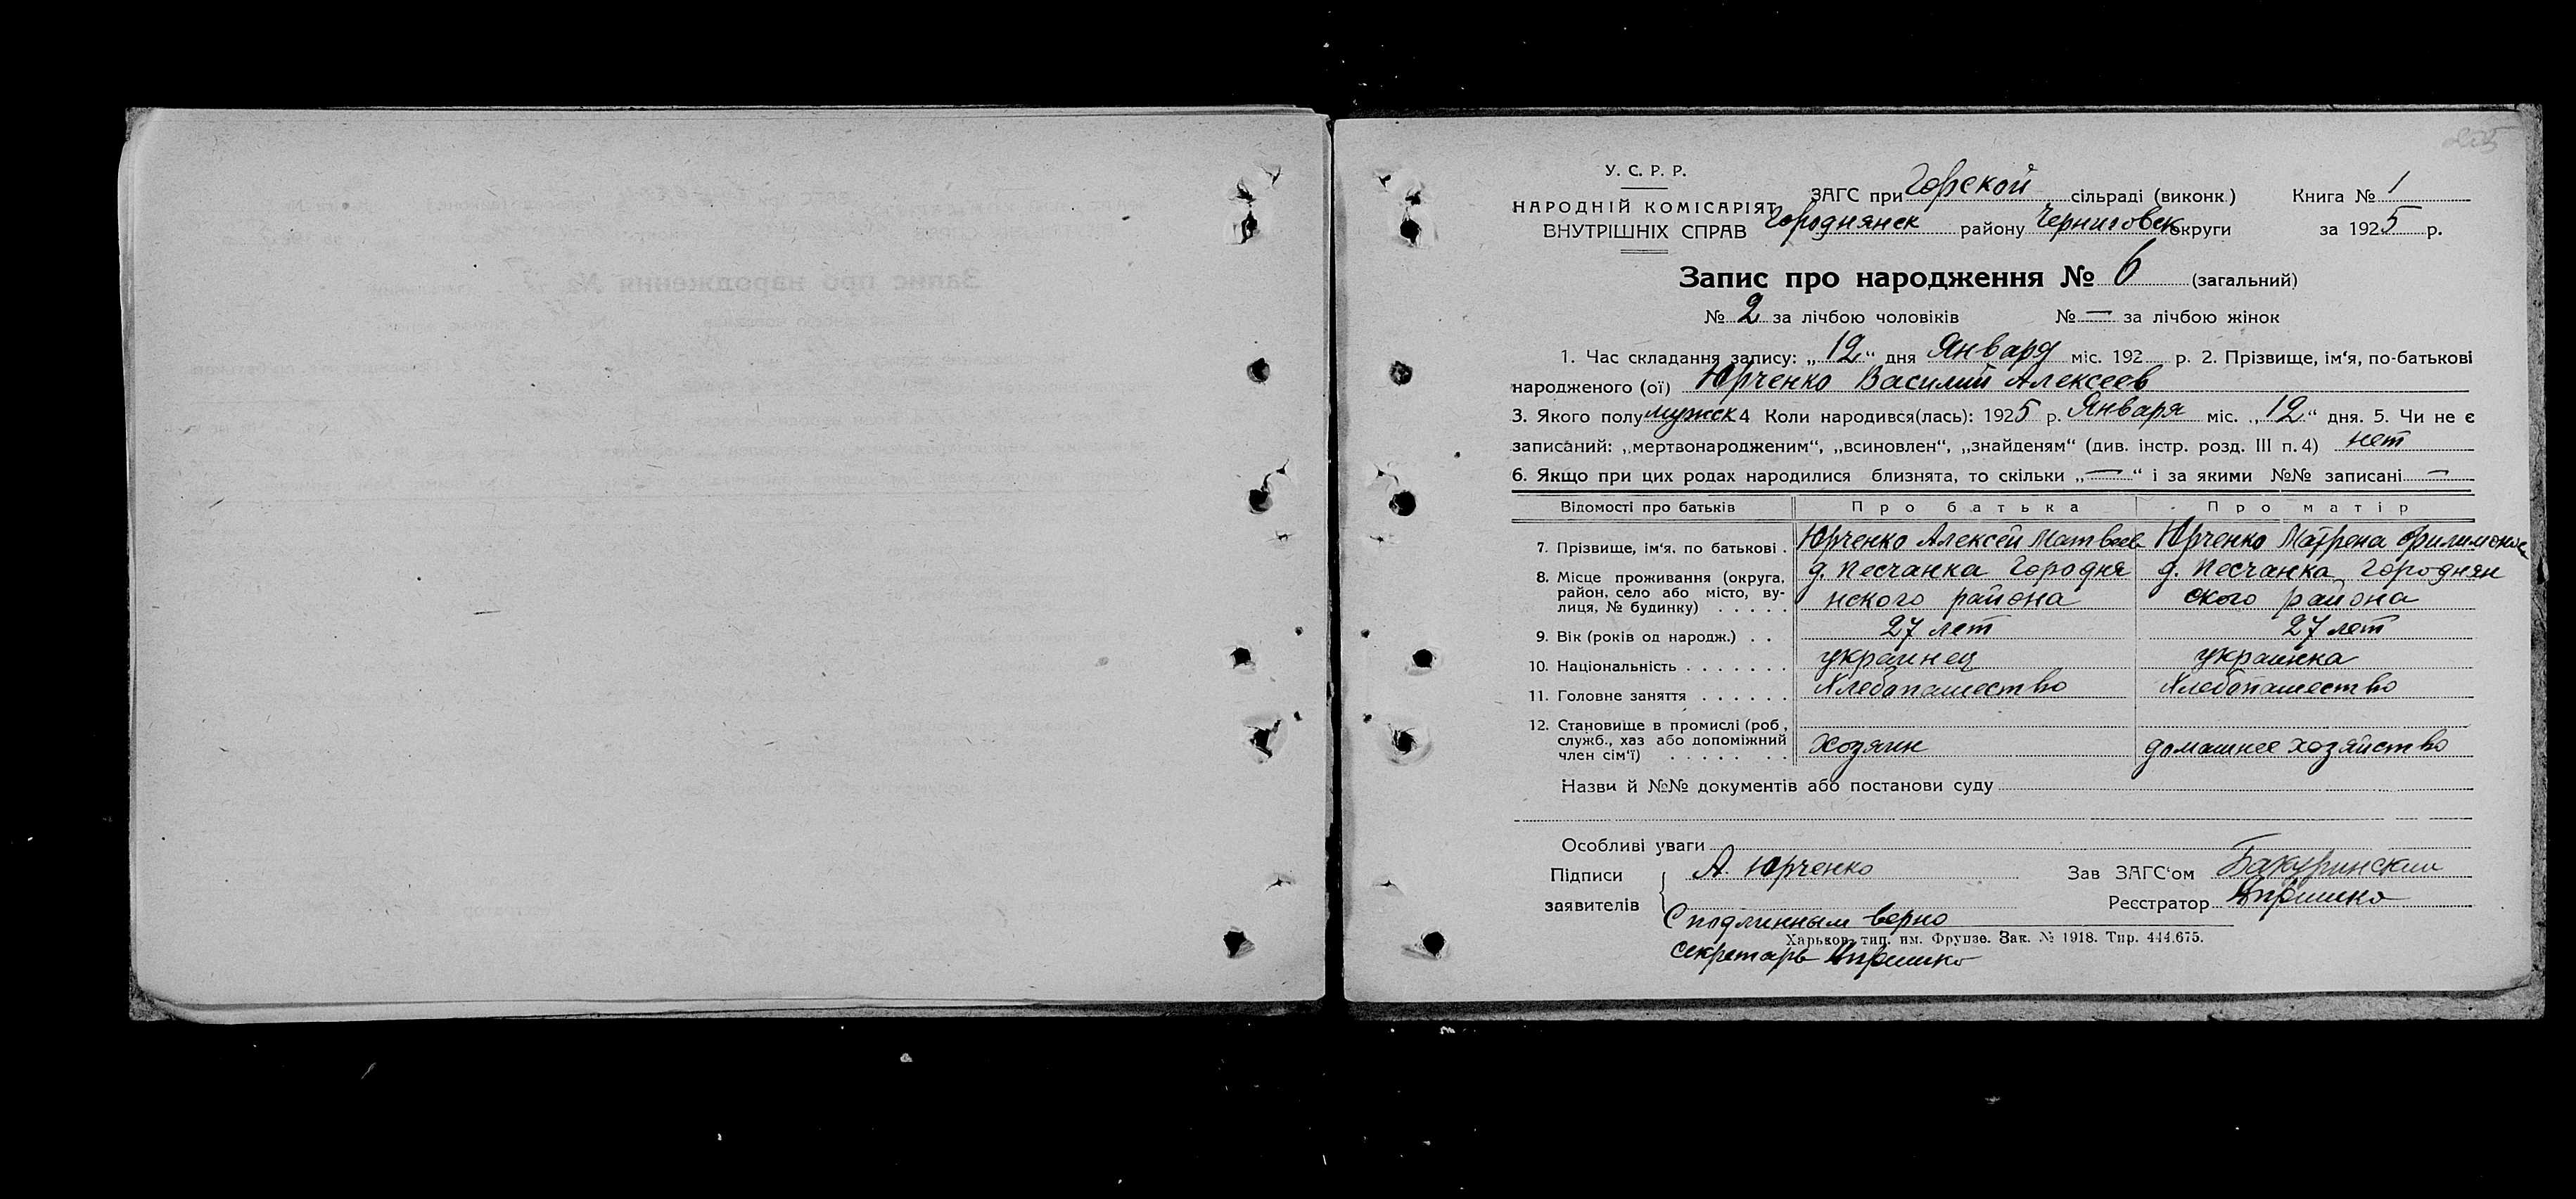 У. С. Р. Р.
НАРОДНІЙ КОМІСАРІЯТ
ВНУТРІШНІХ СПРАВ
ЗАГС при Горской сільраді (виконк.) Книга № 1
Городнянск району Черниговск округи за 1925 р.
Запис про народження № 6 (загальний)
№ 2 за лічбою чоловіків № — за лічбою жінок
1. Час складання запису: „12“ дня Январд міс. 192 р. 2. Прізвище, ім‘я, по-батькові
народженого (ої) Юрченко Василий Алексеев
3. Якого полу мужск 4 Коли народився(лась): 1925 р. Января міс. „12“ дня. 5. Чи не є
записаний: „мертвонародженим“, „всиновлен“, „знайденям“ (див. інстр. розд. III п. 4) нет
6. Якщо при цих родах народилися близнята, то скільки „—“ і за якими №№ записані —
Відомості про батьків Про батька Про матір
7. Прізвище, ім‘я, по батькові . Юрченко Алексей Матвеев Юрченко Матрена
8. Місце проживання (округа, район, село або місто, вулиця, № будинку) . . . . . д. Песчанка Городня д. Песчанка Городнян
нского района ского района
9. Вік (років од народж.) . . 27 лет 27 лет
10. Національність . . . . . . . украинец украинка
11. Головне заняття . . . . . . Хлебопашество Хлебопашество
12. Становище в промислі (роб, служб., хаз або допоміжний член сім‘ї) . . . . . . . Хозяин домашнее хозяйство
Назви й №№ документів або постанови суду
Особливі уваги
Підписи заявителів А. Юрченко
Зав ЗАГС‘ом Бакуринский
Реєстратор
С подлинным верно
Харьков, тип. им. Фрунзе. Зак. № 1918. Тир. 444.675.
секретарь